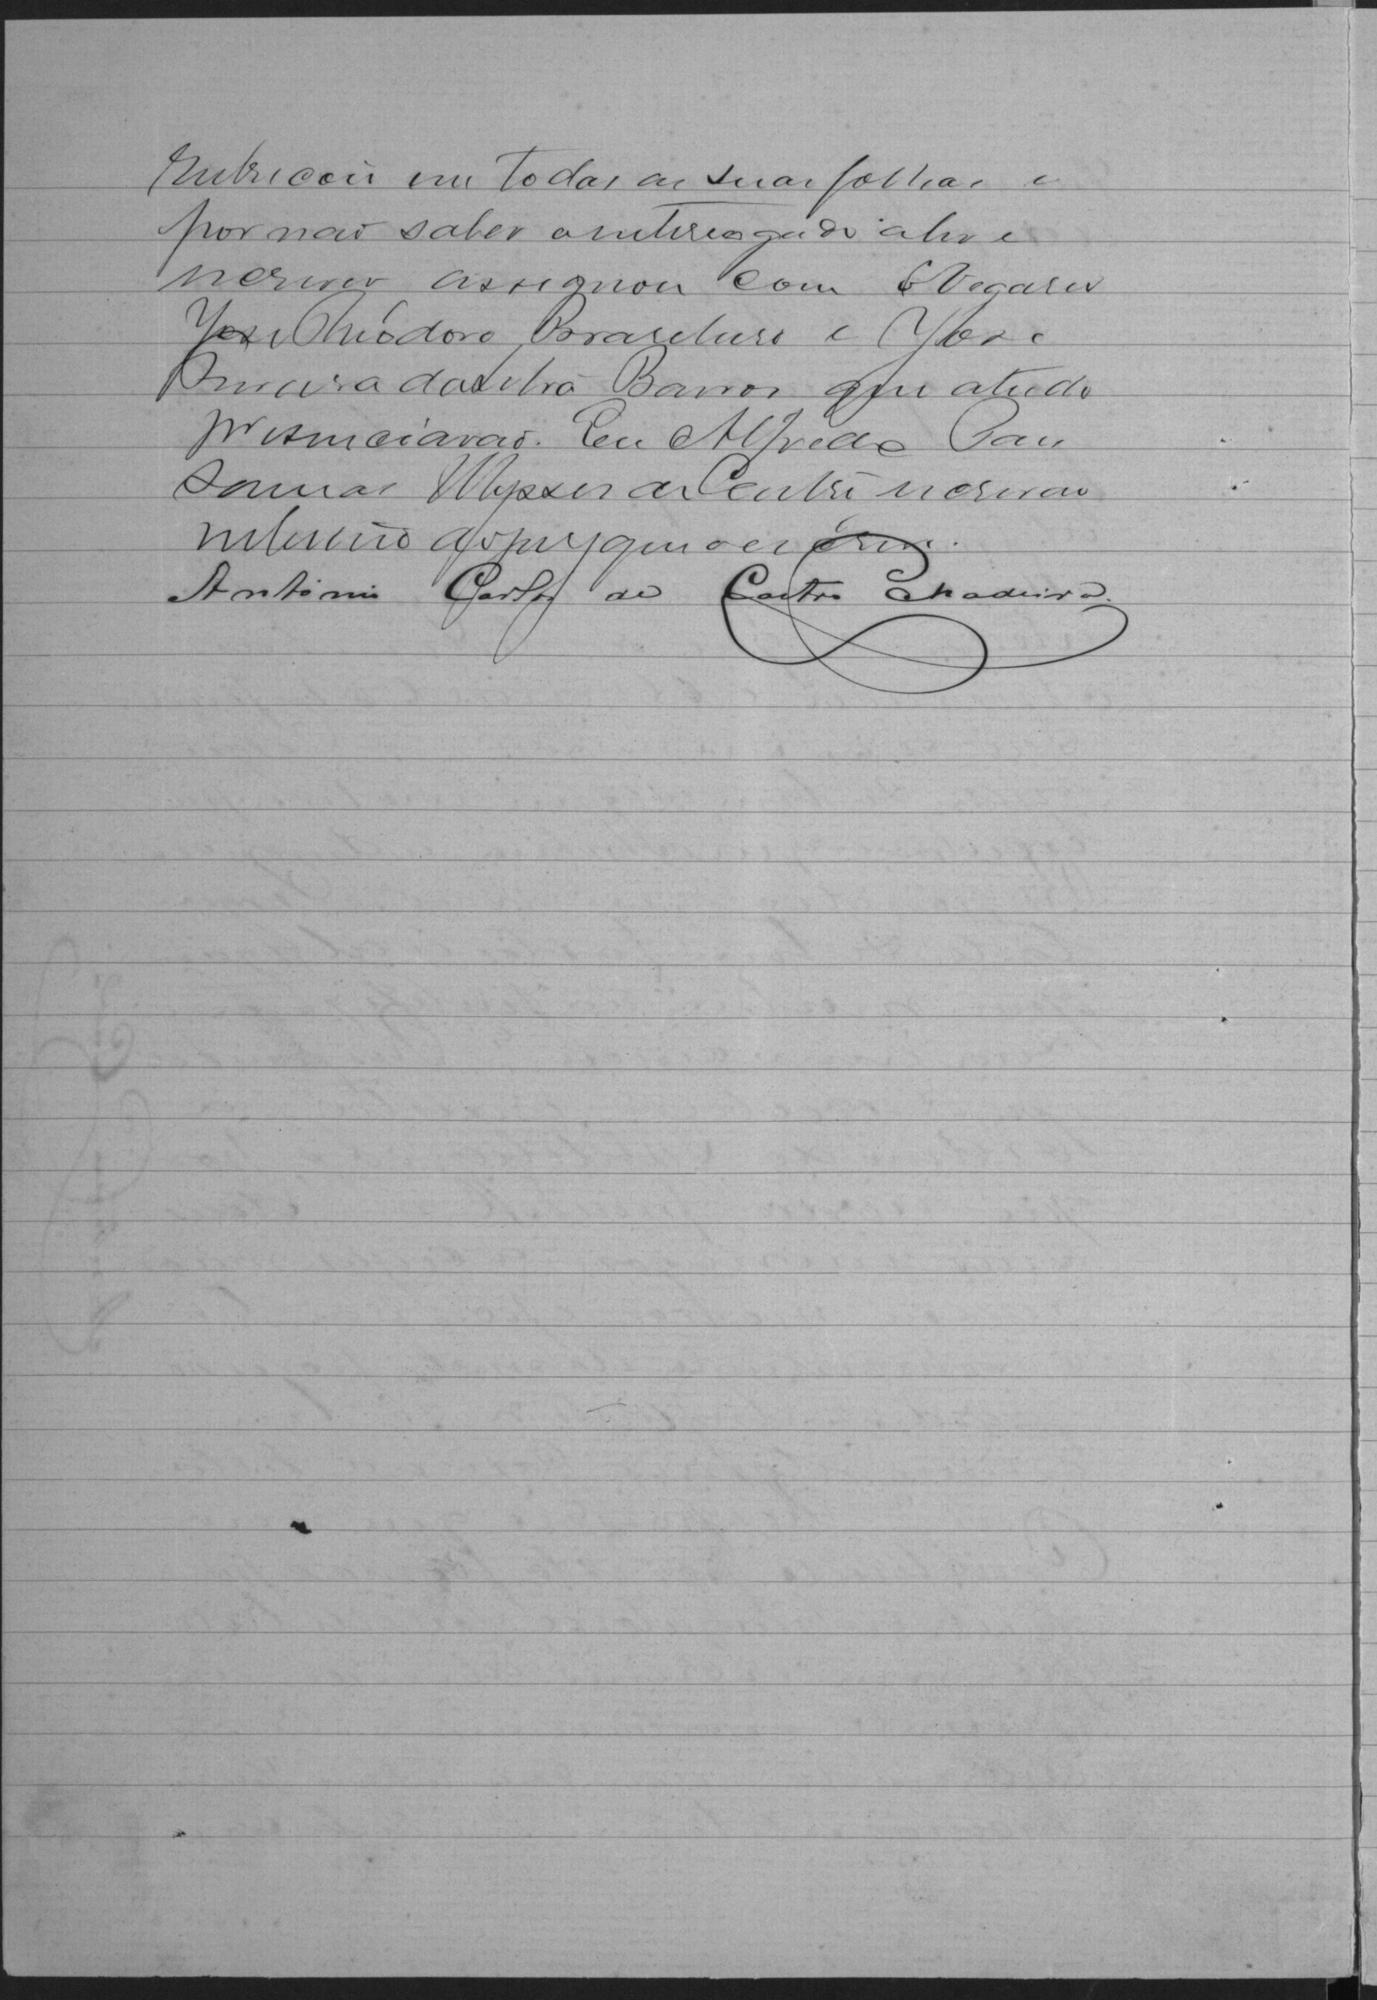 rubricou em todas as suas folhas e
por não saber o interrogado ler e
escrever assignou com
José Theodoro e José
Pereira da Silva Barros que a tudo
presenciarão. Eu Alfredo
Ulysses de Castro escrivão
interino do jury que o escrevi.
Antonio Carlos de Castro Madeira.